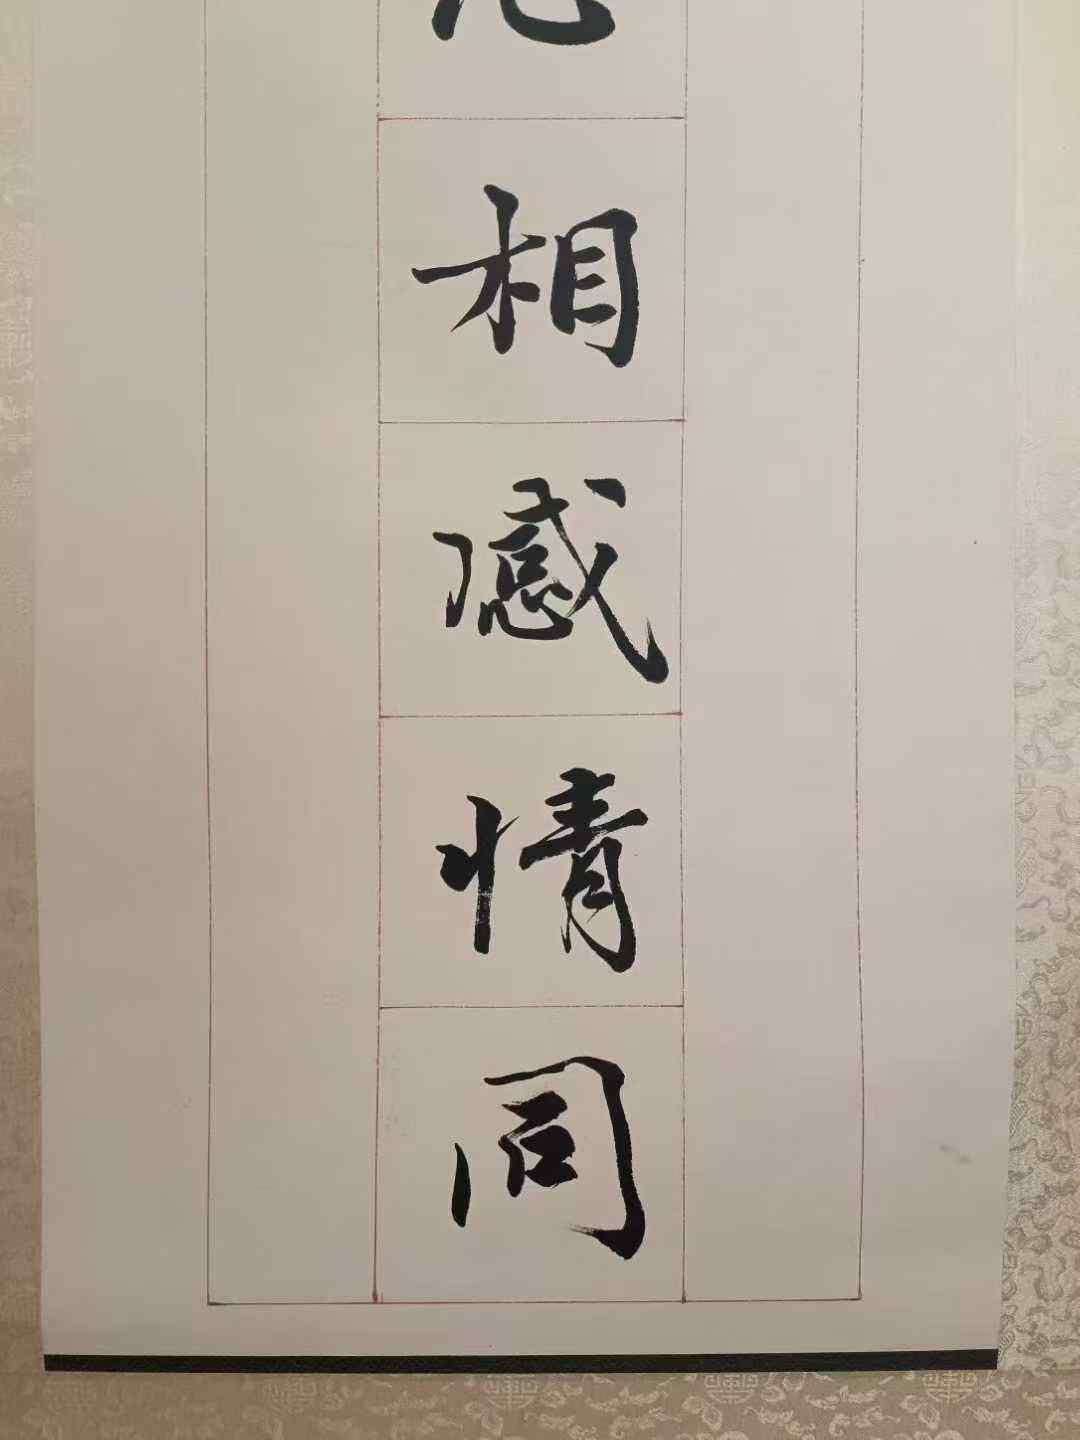 相感情同